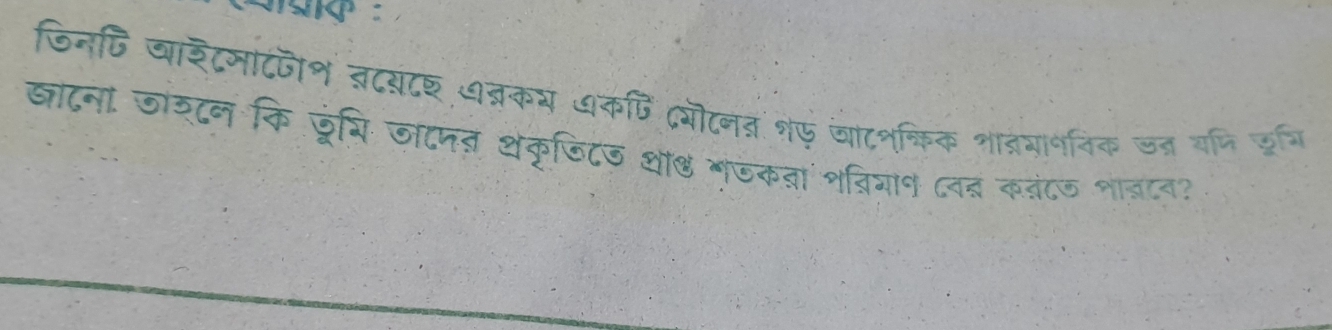 তিনটি আইসোটোপ রয়েছে এরকম একটি মৌলের গড় আপেক্ষিক পারমাণবিক ভর যদি তুমি
জানো তাহলে কি তুমি তাদের প্রকৃতিতে প্রাপ্ত শতকরা পরিমাণ বের করতে পারবে?